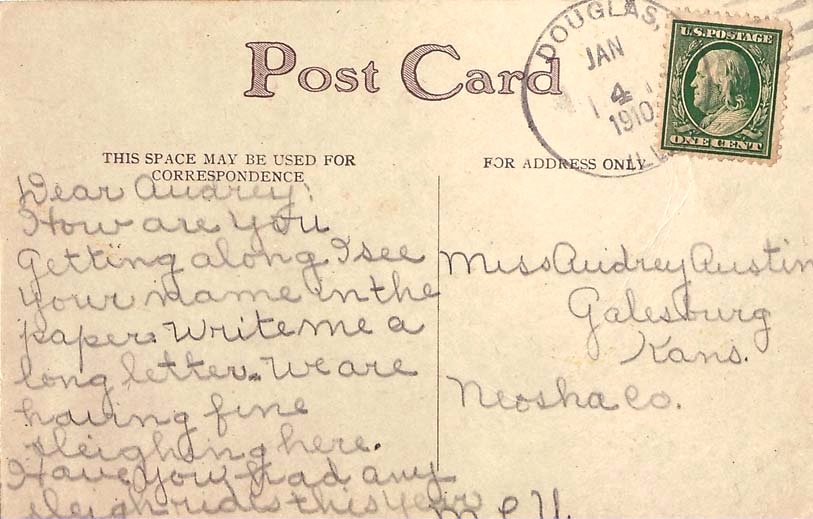 Post Card
DOUGLAS,
JAN
4
1910
ILL.
U.S. POSTAGE
ONE CENT
THIS SPACE MAY BE USED FOR
CORRESPONDENCE
FOR ADDRESS ONLY
Dear Audrey:
How are you
getting along I see
your name in the
paper. Write me a
long letter. We are
having fine
sleighing here.
Have you had any
sleigh rides this year
M. C. U.
Miss Audrey Austin
Galesburg
Kans.
Neosha Co.